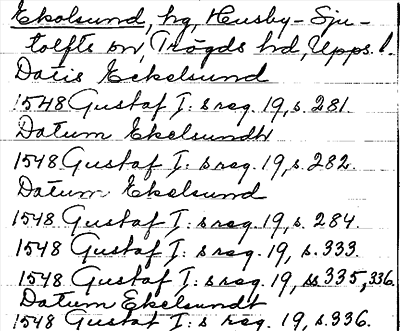 Ekolsund, hg, Husby-Sju-
tolfts sn, Trögds hd, Upps. l.
Datis Eckelsund
1548 Gustaf I:s reg. 19, s. 281.
Datum Ekelsundh
1548 Gustaf I:s reg. 19, s. 282.
Datum Ekelsund
1548 Gustaf I:s reg. 19, s. 284.
1548 Gustaf I:s reg. 19, s. 333.
1548 Gustaf I:s reg. 19, ss 335, 336.
Datum Ekelsundt
1548 Gustaf I:s reg. 19, s. 336.